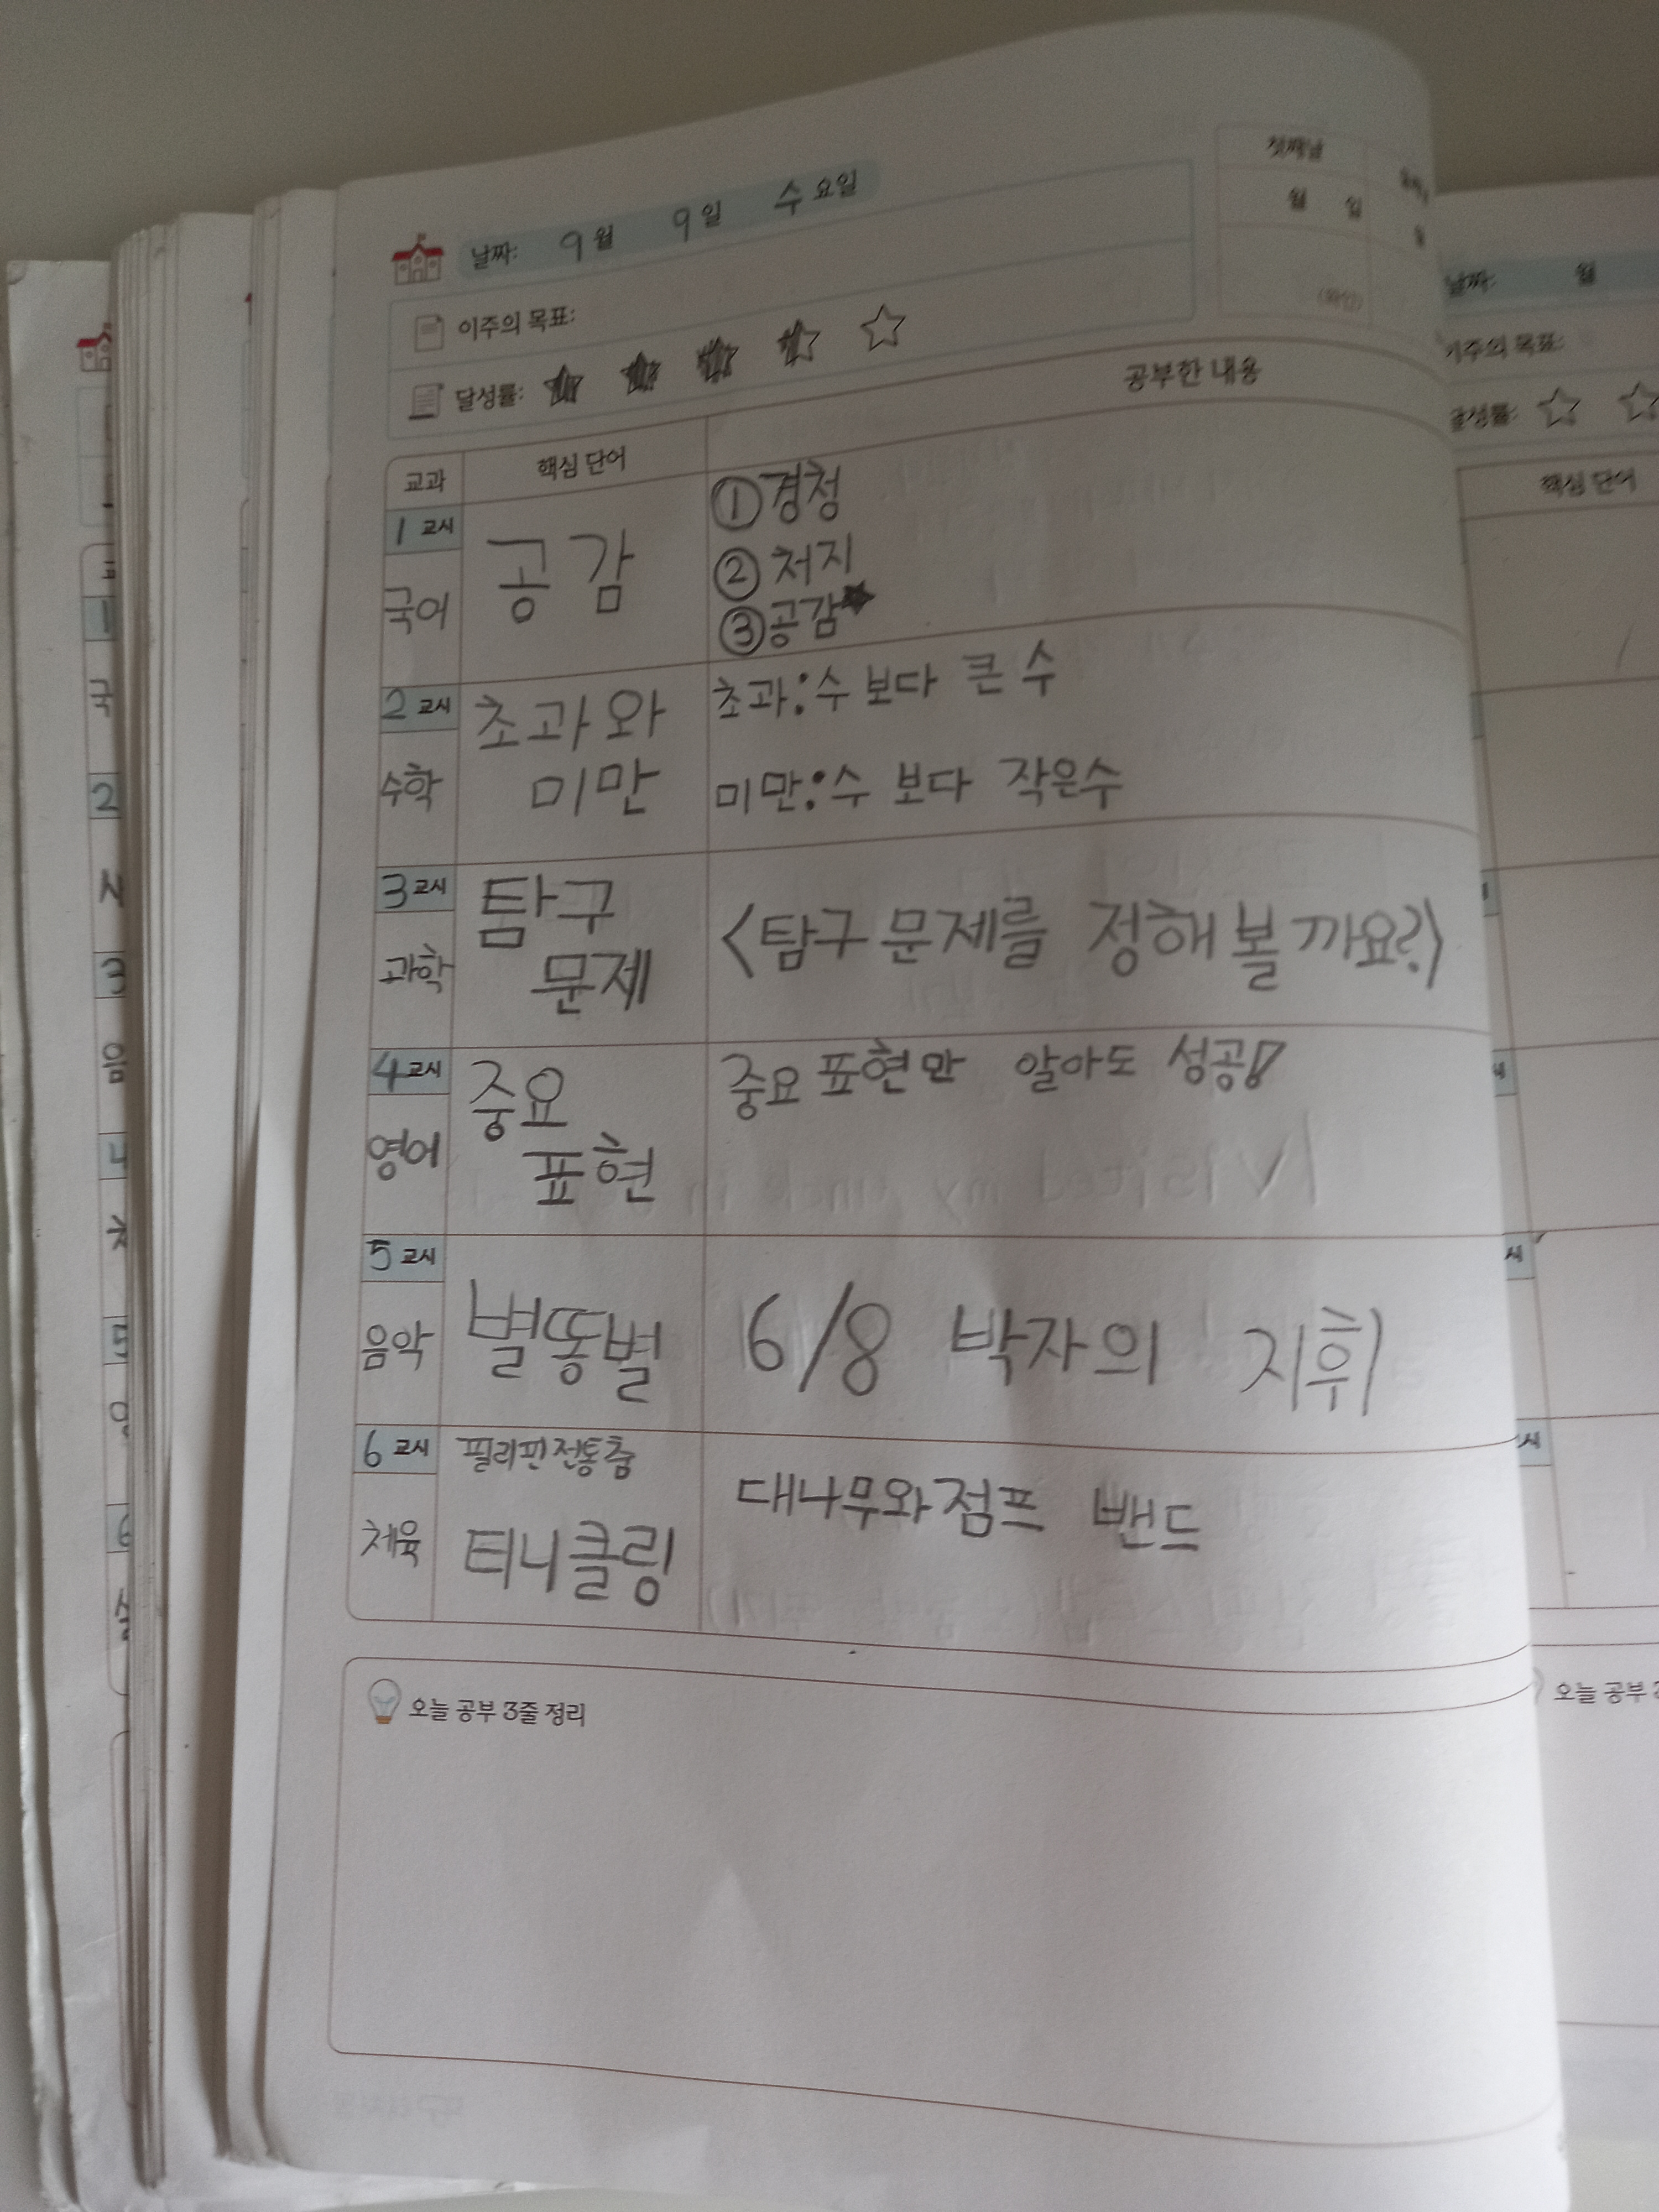 날짜: 9월 9일 수요일
첫째날
월 일
(확인)
이주의 목표:
달성률:
교과 핵심 단어 공부한 내용
1교시
국어
공감
①경청
②처지
③공감★
2교시
수학
초과와
미만
초과:수 보다 큰 수
미만:수 보다 작은수
3교시
과학
탐구
문제
<탐구 문제를 정해 볼까요?>
4교시
영어
중요
표현
중요 표현만 알아도 성공!
5교시
음악
별똥별
6/8 박자의 지휘
6교시
체육
필리핀 전통춤
티니클링
대나무와 점프 밴드
오늘 공부 3줄 정리
날짜: 월
이주의 목표:
달성률:
핵심 단어
오늘 공부